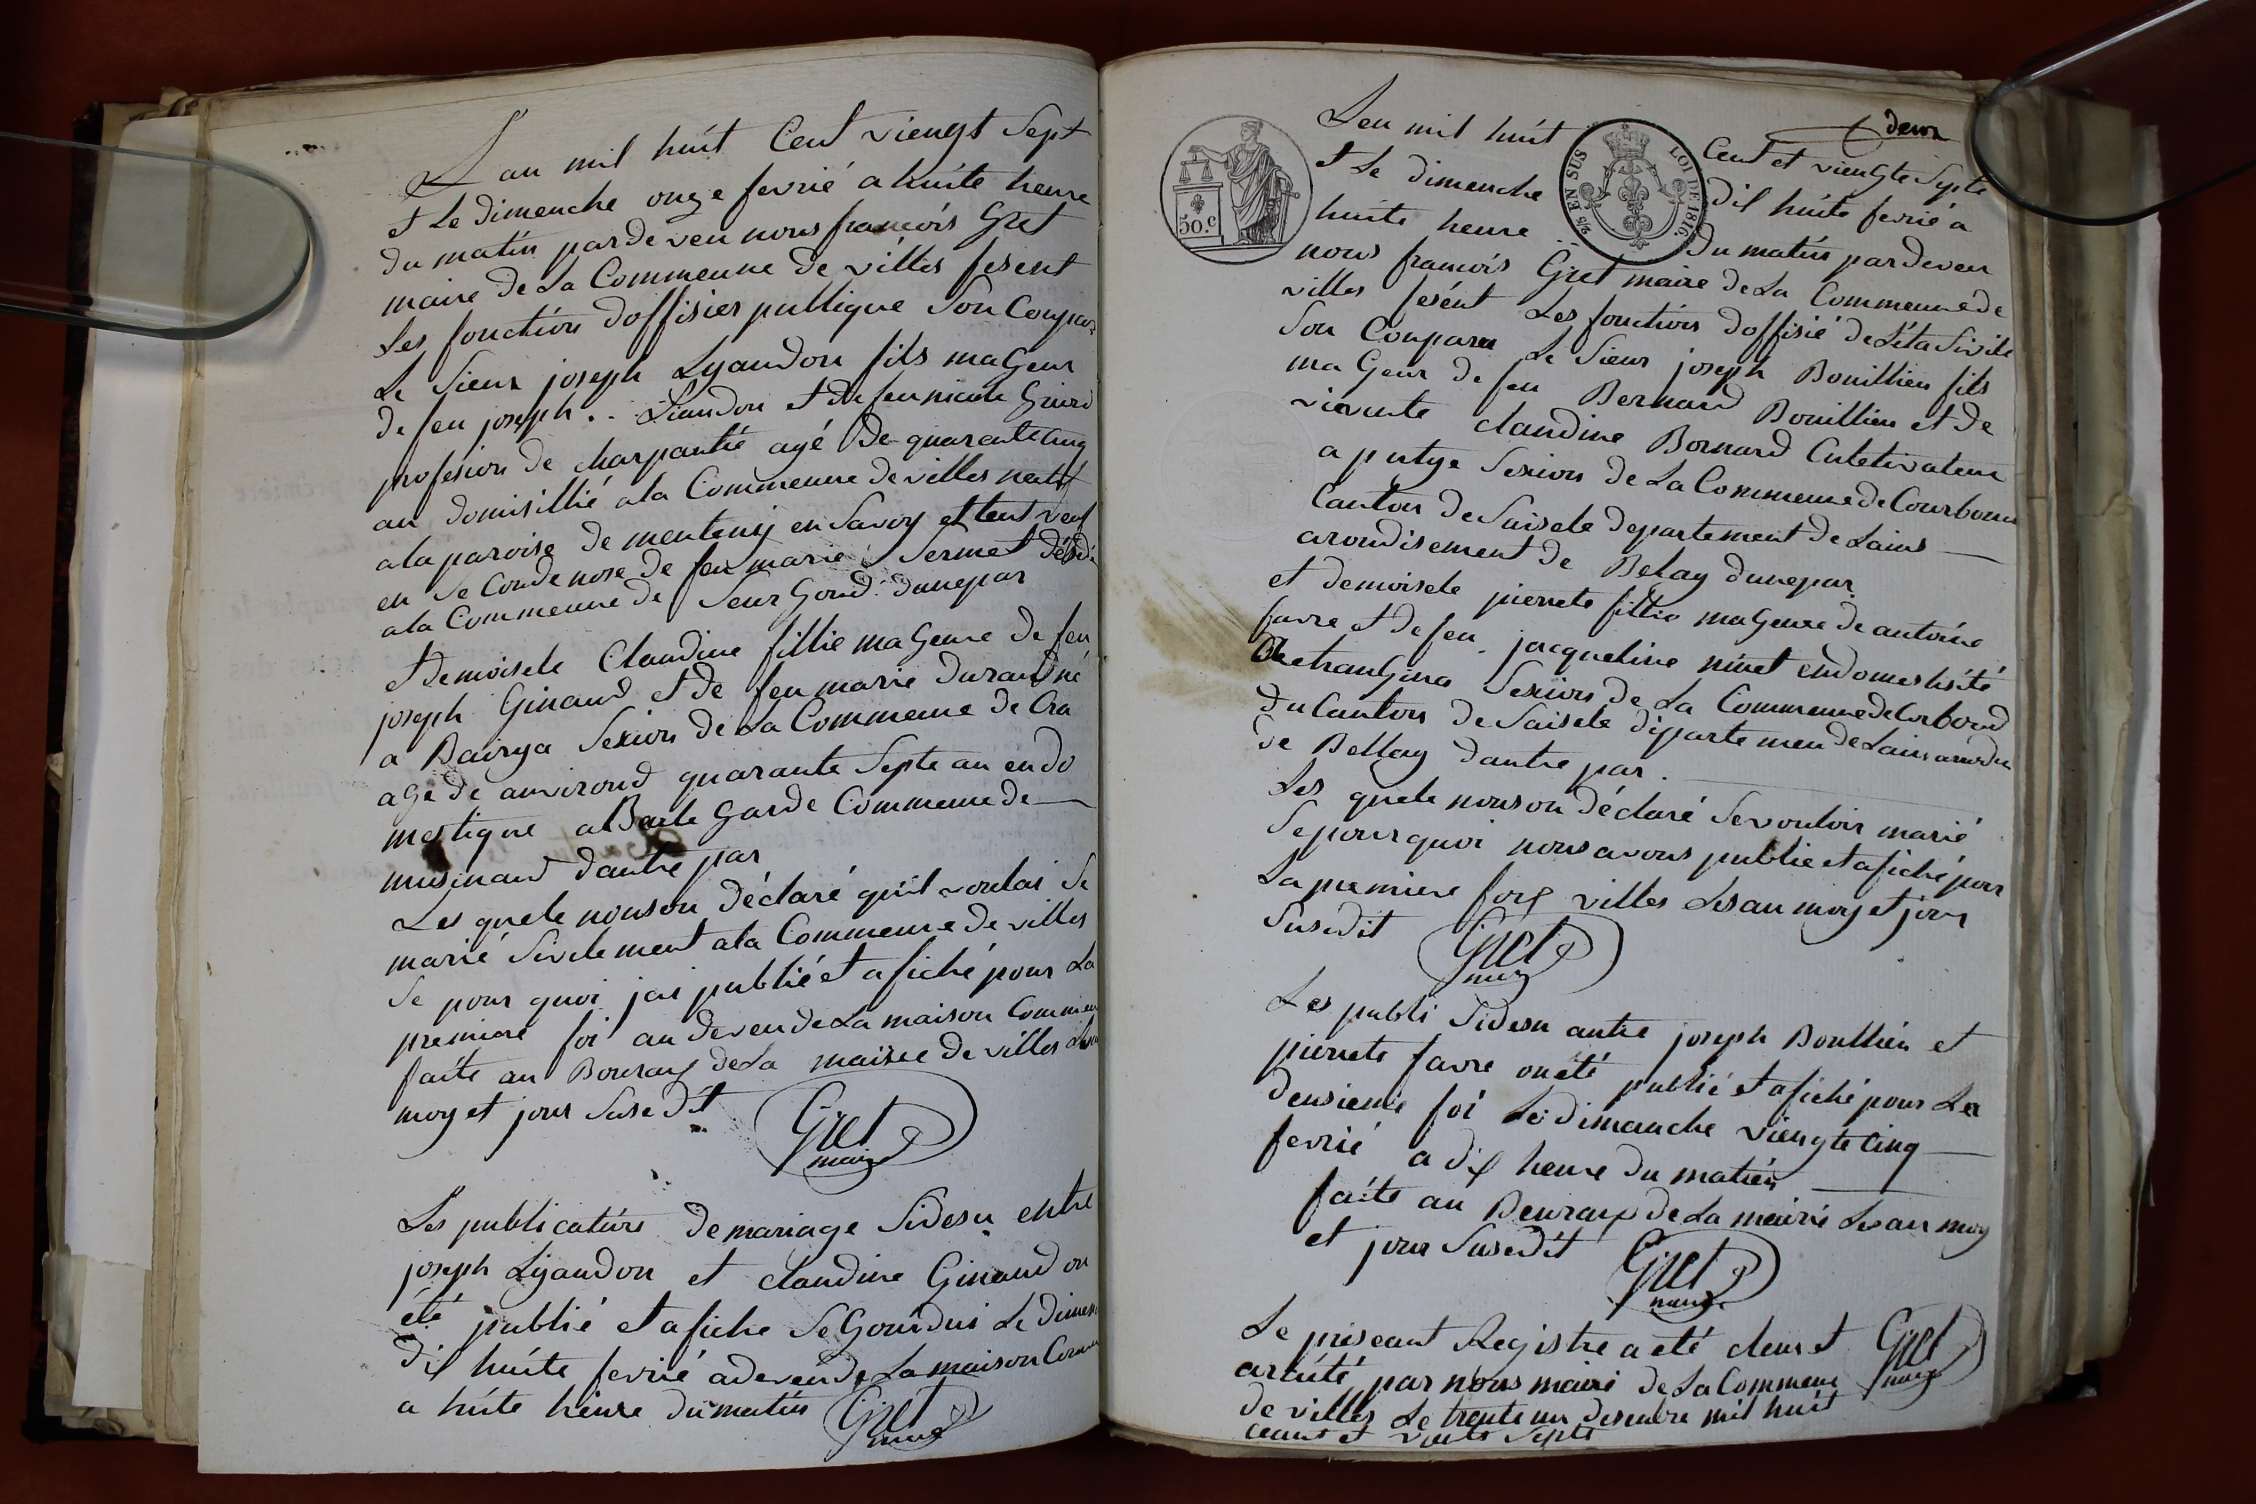 L'au mil huit Cent viengt Sept
et Le dimenche onze fevrié a huite heure
du matin par de veu nous francois Gret
maire De La Commeune De villes fesent
Les fonction doffisier publique Son Compar
Le Sieur joseph Lyaudon fils maGeur
de feu joseph Liaudon et de feu nicole
profesion de charpantié agé De quarante Cinq
au domisillié a la Commeune de villes natif
a la paroise de menteny en Savoy et tent veuf
en Se Conde nose De feu marie Sermet
a la Commeune De Seur Goud dunepar
et demoisele Claudine fillie maGeure De feu
joseph Ginaud et De feu marie Duraud né
a Bairya Sexion De La Commeune de Cra
aGe De anvirond quarante Septe au en do
mestique a Bele Garde Commeune De
musinaud dautre par
Les quele nouson Déclaré quil voulai Se
marié Sivelement a la Commeune De villes
Se pour quoi jai publié et afiché pour La
premiere foi au deven de La maison Commeu
faite au Bouraux De La mairee De villes
moy et jour Susedit
Gret
maire
Les publication De mariage Sidesu entre
joseph Lyaudon et claudine Ginaud on
été publié et afiche SeGourdui Le dimen
Dil huite fevrié a deven De La maison Commeu
a huite heure Du matin
Gret
maire
deux
50.c
25 EN SUS
LOI DE 1816.
Leu mil huit Cent et viengte Septe
et Le dimenche Dil huite fevrié a
huite heure du matin par Deveu
nous francois Gret maire De La Commeune De
villes fesent Les fonction doffisié De Léta Sivile
Son Comparu Le Sieur joseph Bouillien fils
maGeur De feu Bernard Bouillien et De
vivente claudine Bornard Culetivateur
a putye Sexion De La Commeune De Courbonu
Canton De Saisele departement De Lains
arondisement De Belay dunepar
et demoisele pierrete fillie maGeure De antoine
favre et De feu jacqueline ninet endomestisité
Sexion De La Commeune De Corbond
Du Canton De Saisele departemen De Lains
De Bellay dautre par
Les quele nouson Déclaré Se vouloir marié
Se pour quoi nous avons publie et afiché pour
La premiere foix villes Lesan moy et jour
Susedit
Gret
maire
Les publi Sidesu antre joseph Boullien et
pierrete favre on été publié et afiché pour La
deusieme foi Le dimanche viengte Cinq
fevrié a dix heure Du matien
faite au Beuraux De La mairie Lesan moy
et jour Susedit
Gret
maire
Le preseant Registre a eté cleus et
arreté par nous maire De La Commeune
De villes Le trente un Desembre mil huit
ceant et vints Septe
Gret
maire